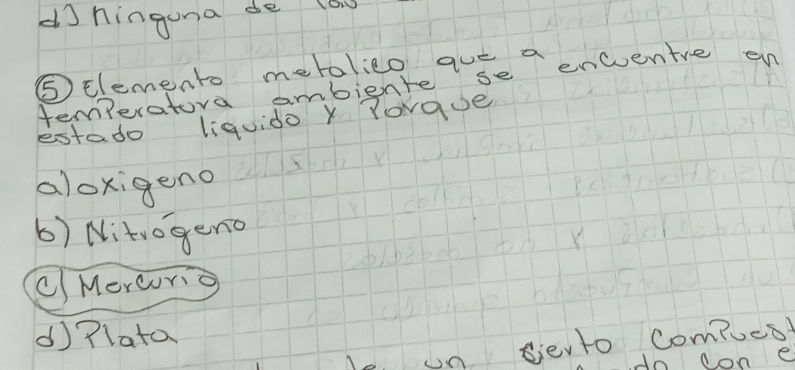 d) ninguna de las
⑤ Elemento metalico que a
temperatura ambiente se encuentre en
estado liquido y Porque
a) oxigeno
b) Nitrógeno
c) Mercurio
d) Plata
un cierto compuest
do con e